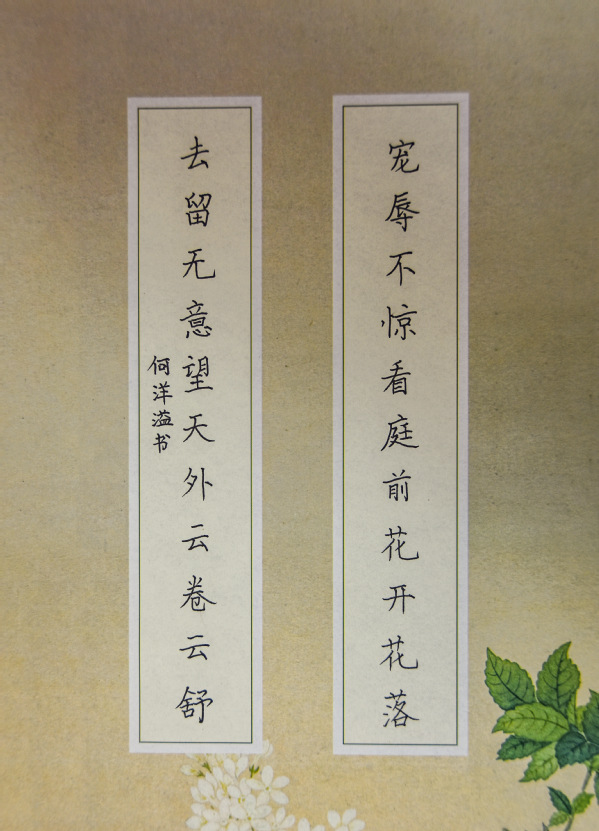 宠辱不惊看庭前花开花落
去留无意望天外云卷云舒
何洋溢书